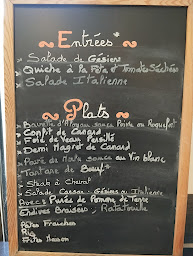 ~ Entrées ~
Salade de Gésiers
Quiche à la Feta & Tomates Séchées
Salade Italienne
~ Plats ~
Bavette d'Aloyau sauce Poivre ou Roquefort
Confit de Canard
Foie de Veau Persillé
Demi Magret de Canard
Pavé de sauce au Vin blanc
Tartare de Boeuf
Steak à Cheval
Salade Gésiers ou Italienne
Avec : Purée de Pomme de Terre
Endives Braisées, Ratatouille
Frites Maison